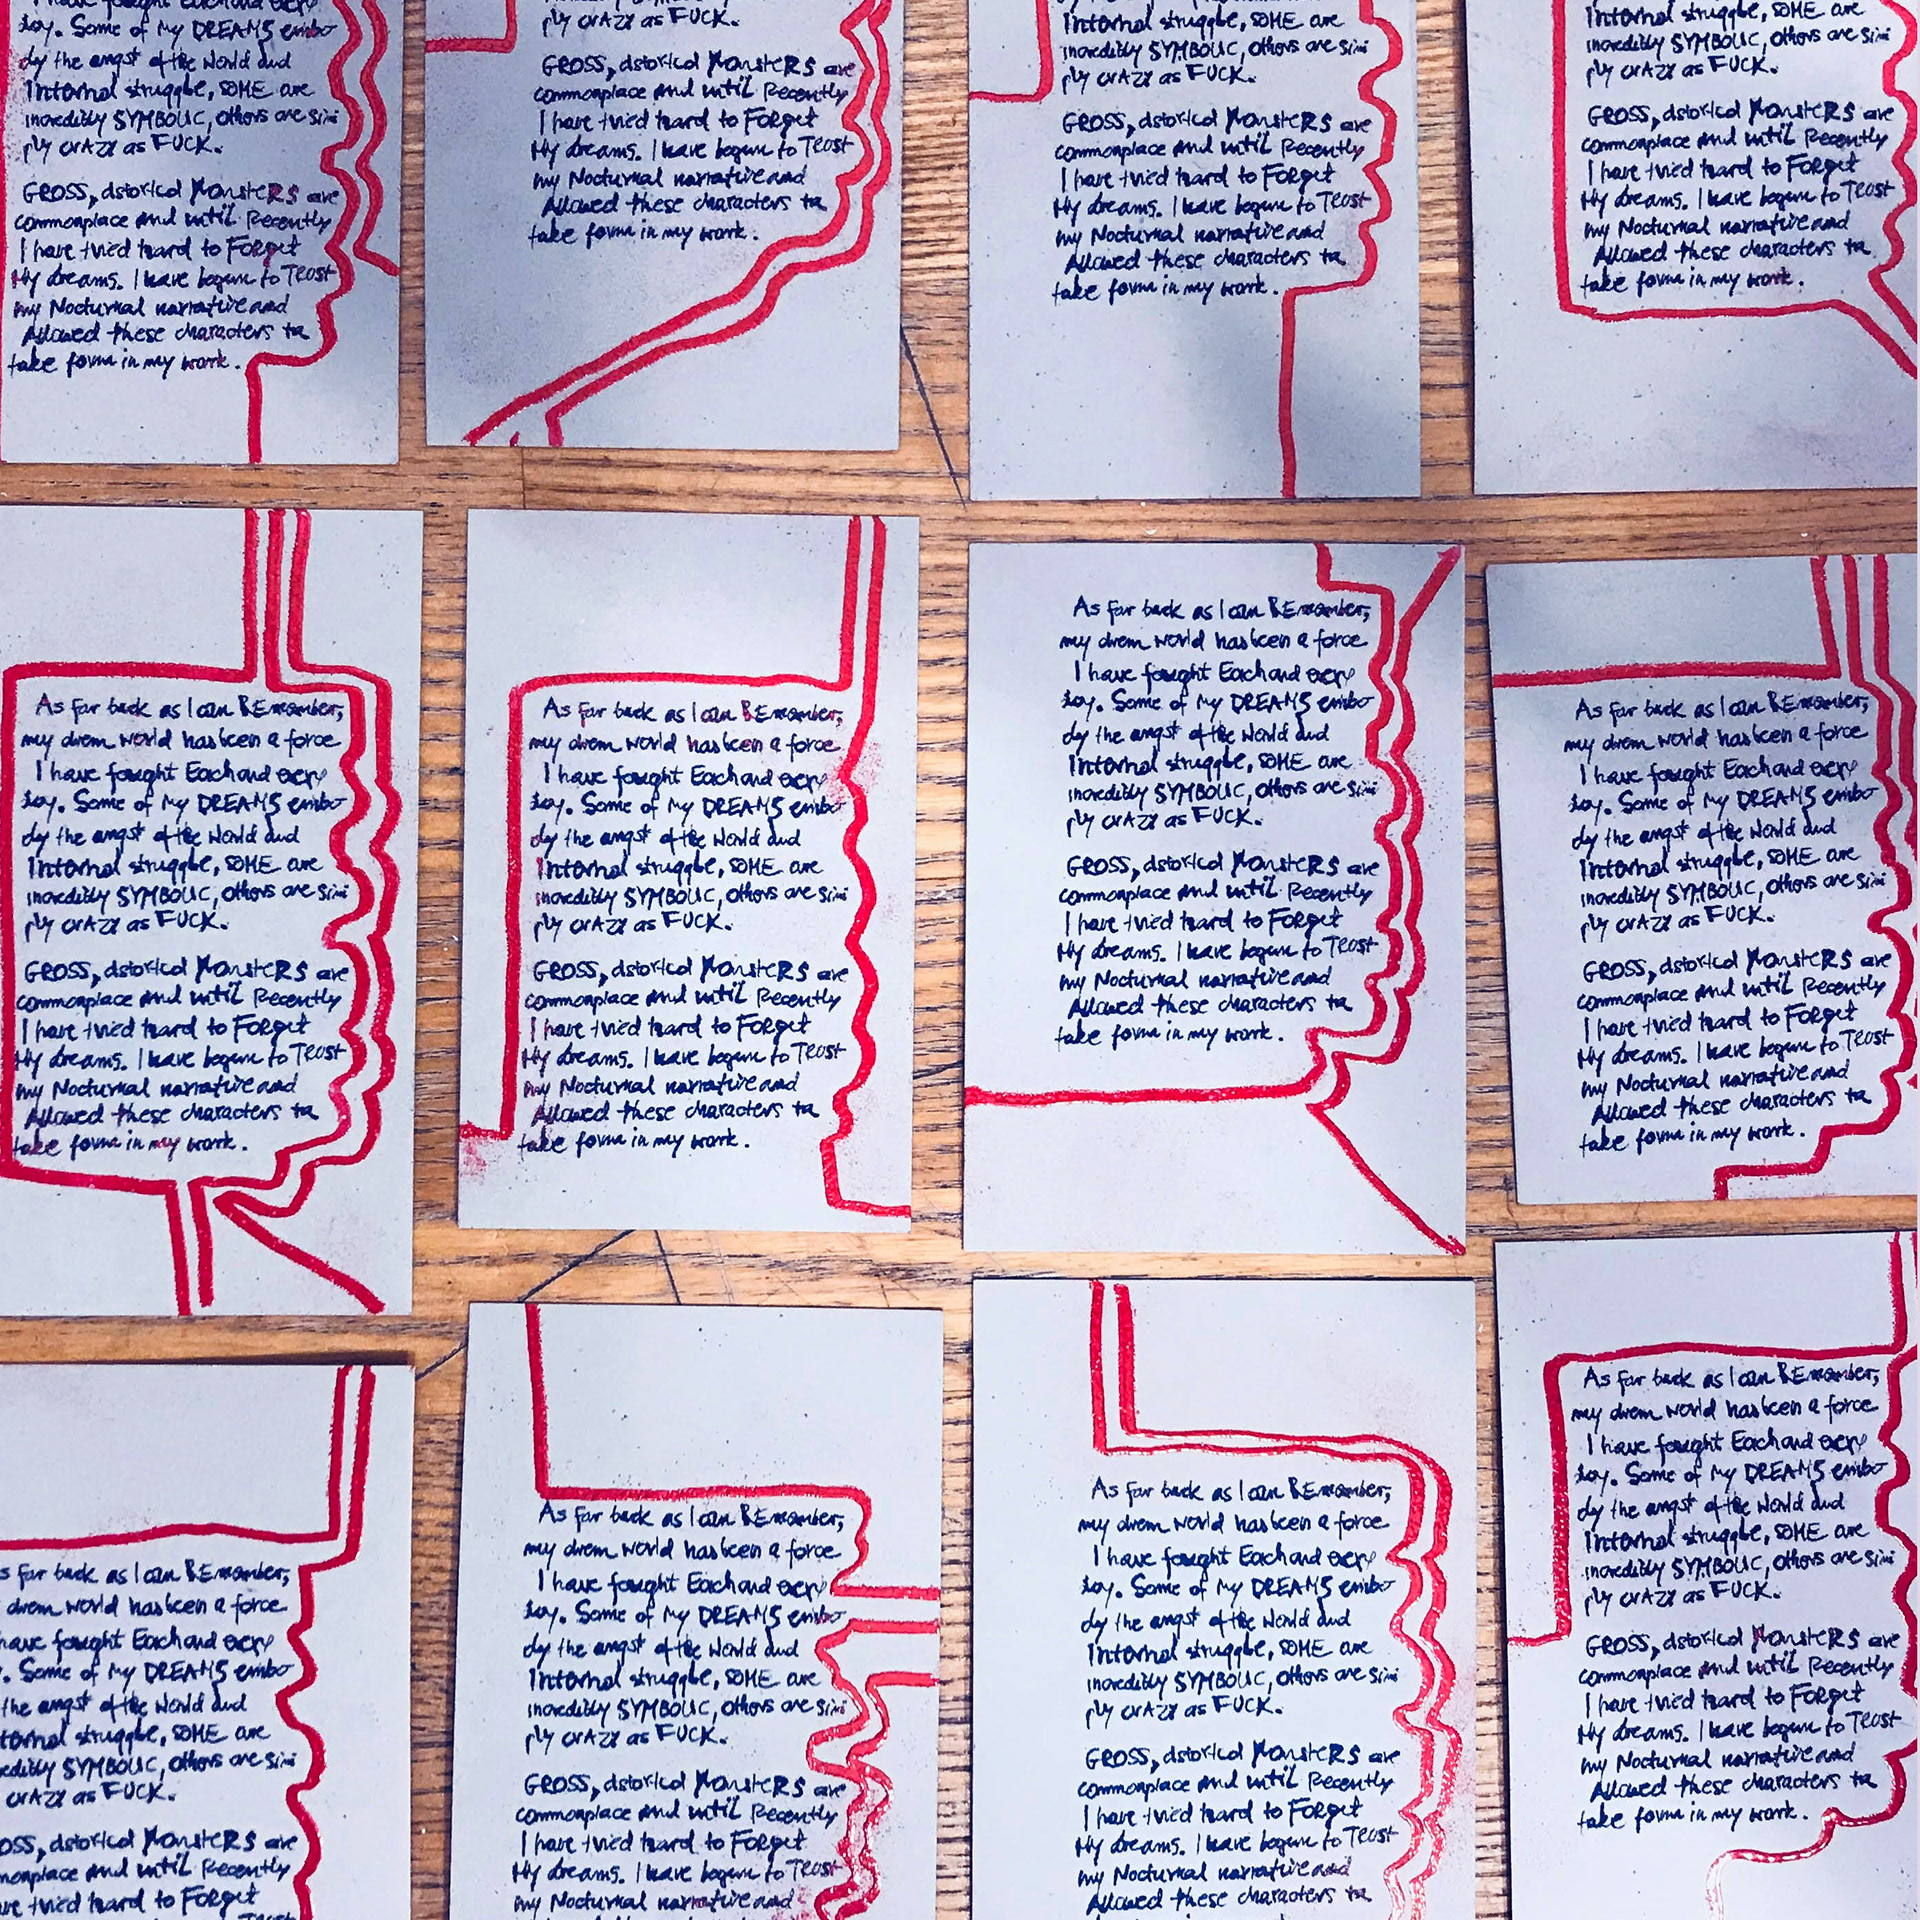 I have fought Each and every
day. Some of My DREAMS embo
dy the angst of the World and
Internal struggle, SOME are
incredibly SYMBOLIC, others are Sim
ply crAZy as FUCK.
GROSS, dstorted MonsteRS are
commonplace and until Recently
I have tried hard to FoRget
My dreams. I have begun to TRust
my Nocturnal narrative and
Allowed these characters to
take form in my work.
ply crAZy as FUCK.
GROSS, dstorted MonsteRS are
commonplace and until Recently
I have tried hard to FoRget
My dreams. I have begun to TRust
my Nocturnal narrative and
Allowed these characters to
take form in my work.
Internal struggle, SOME are
incredibly SYMBOLIC, others are Sim
ply crAZy as FUCK.
GROSS, dstorted MonsteRS are
commonplace and until Recently
I have tried hard to FoRget
My dreams. I have begun to TRust
my Nocturnal narrative and
Allowed these characters to
take form in my work.
Internal struggle, SOME are
incredibly SYMBOLIC, others are Sim
ply crAZy as FUCK.
GROSS, dstorted MonsteRS are
commonplace and until Recently
I have tried hard to FoRget
My dreams. I have begun to TRust
my Nocturnal narrative and
Allowed these characters to
take form in my work.
As far back as I can REmember,
my drem world has been a force
I have fought Each and every
day. Some of My DREAMS embo
dy the angst of the World and
Internal struggle, SOME are
incredibly SYMBOLIC, others are Sim
ply crAZy as FUCK.
GROSS, dstorted MonsteRS are
commonplace and until Recently
I have tried hard to FoRget
My dreams. I have begun to TRust
my Nocturnal narrative and
Allowed these characters to
take form in my work.
As far back as I can REmember,
my drem world has been a force
I have fought Each and every
day. Some of My DREAMS embo
dy the angst of the World and
Internal struggle, SOME are
incredibly SYMBOLIC, others are Sim
ply crAZy as FUCK.
GROSS, dstorted MonsteRS are
commonplace and until Recently
I have tried hard to FoRget
My dreams. I have begun to TRust
my Nocturnal narrative and
Allowed these characters to
take form in my work.
As far back as I can REmember,
my drem world has been a force
I have fought Each and every
day. Some of My DREAMS embo
dy the angst of the World and
Internal struggle, SOME are
incredibly SYMBOLIC, others are Sim
ply crAZy as FUCK.
GROSS, dstorted MonsteRS are
commonplace and until Recently
I have tried hard to FoRget
My dreams. I have begun to TRust
my Nocturnal narrative and
Allowed these characters to
take form in my work.
As far back as I can REmember,
my drem world has been a force
I have fought Each and every
day. Some of My DREAMS embo
dy the angst of the World and
Internal struggle, SOME are
incredibly SYMBOLIC, others are Sim
ply crAZy as FUCK.
GROSS, dstorted MonsteRS are
commonplace and until Recently
I have tried hard to FoRget
My dreams. I have begun to TRust
my Nocturnal narrative and
Allowed these characters to
take form in my work.
far back as I can REmember,
drem world has been a force
have fought Each and every
Some of My DREAMS embo
the angst of the World and
struggle, SOME are
SYMBOLIC, others are Sim
crAZy as FUCK.
dstorted MonsteRS are
and until Recently
tried hard to FoRget
As far back as I can REmember,
my drem world has been a force
I have fought Each and every
day. Some of My DREAMS embo
dy the angst of the World and
Internal struggle, SOME are
incredibly SYMBOLIC, others are Sim
ply crAZy as FUCK.
GROSS, dstorted MonsteRS are
commonplace and until Recently
I have tried hard to FoRget
My dreams. I have begun to TRust
my Nocturnal narrative and
As far back as I can REmember,
my drem world has been a force
I have fought Each and every
day. Some of My DREAMS embo
dy the angst of the World and
Internal struggle, SOME are
incredibly SYMBOLIC, others are Sim
ply crAZy as FUCK.
GROSS, dstorted MonsteRS are
commonplace and until Recently
I have tried hard to FoRget
My dreams. I have begun to TRust
my Nocturnal narrative and
Allowed these characters to
As far back as I can REmember,
my drem world has been a force
I have fought Each and every
day. Some of My DREAMS embo
dy the angst of the World and
Internal struggle, SOME are
incredibly SYMBOLIC, others are Sim
ply crAZy as FUCK.
GROSS, dstorted MonsteRS are
commonplace and until Recently
I have tried hard to FoRget
My dreams. I have begun to TRust
my Nocturnal narrative and
Allowed these characters to
take form in my work.